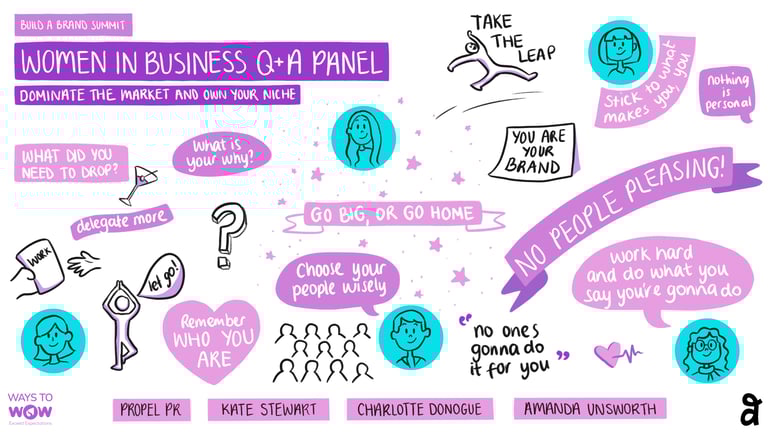 BUILD A BRAND SUMMIT
WOMEN IN BUSINESS Q+A PANEL
DOMINATE THE MARKET AND OWN YOUR NICHE
TAKE
THE
LEAP
Stick to what
makes you, you
nothing
is
personal
WHAT DID YOU
NEED TO DROP?
What is
your why?
YOU ARE
YOUR
BRAND
delegate more
?
GO BIG, OR GO HOME
NO PEOPLE PLEASING!
WORK
let go!
Choose your
people wisely
Work hard
and do what you
say you're gonna do
Remember
WHO YOU
ARE
"no ones
gonna do
it for you"
WAYS TO
WOW
Exceed Expectations
PROPEL PR
KATE STEWART
CHARLOTTE DONOGUE
AMANDA UNSWORTH